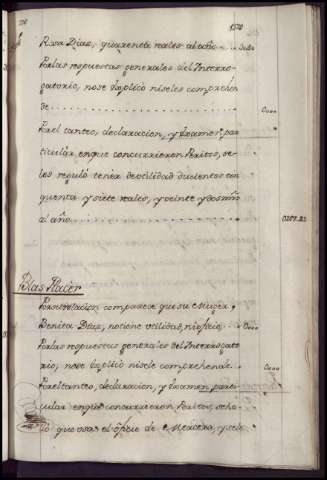 Rosa Diaz, quarenta reales al año
Por las respuestas generales del Interro-
gatorio, no se explicó ni se les comprehen
de
Por el tanteo, declaracion, y Examen par
ticular, en que concurrieron Peritos, se
les reguló tener de utilidad ducientos cin
quenta y siete reales, y veinte y dos mrs
al año
0257..22
Blas Placer
Por su relacion comparece que su Muger
Benita Diaz, no tiene utilidad, ni oficio
Por las respuestas generales del Interrogato
rio, no se explicó ni se le comprehende
Por el tanteo, declaracion, y Examen parti
cular en que concurrieron Peritos, se ha
lló que usa el oficio de y se le